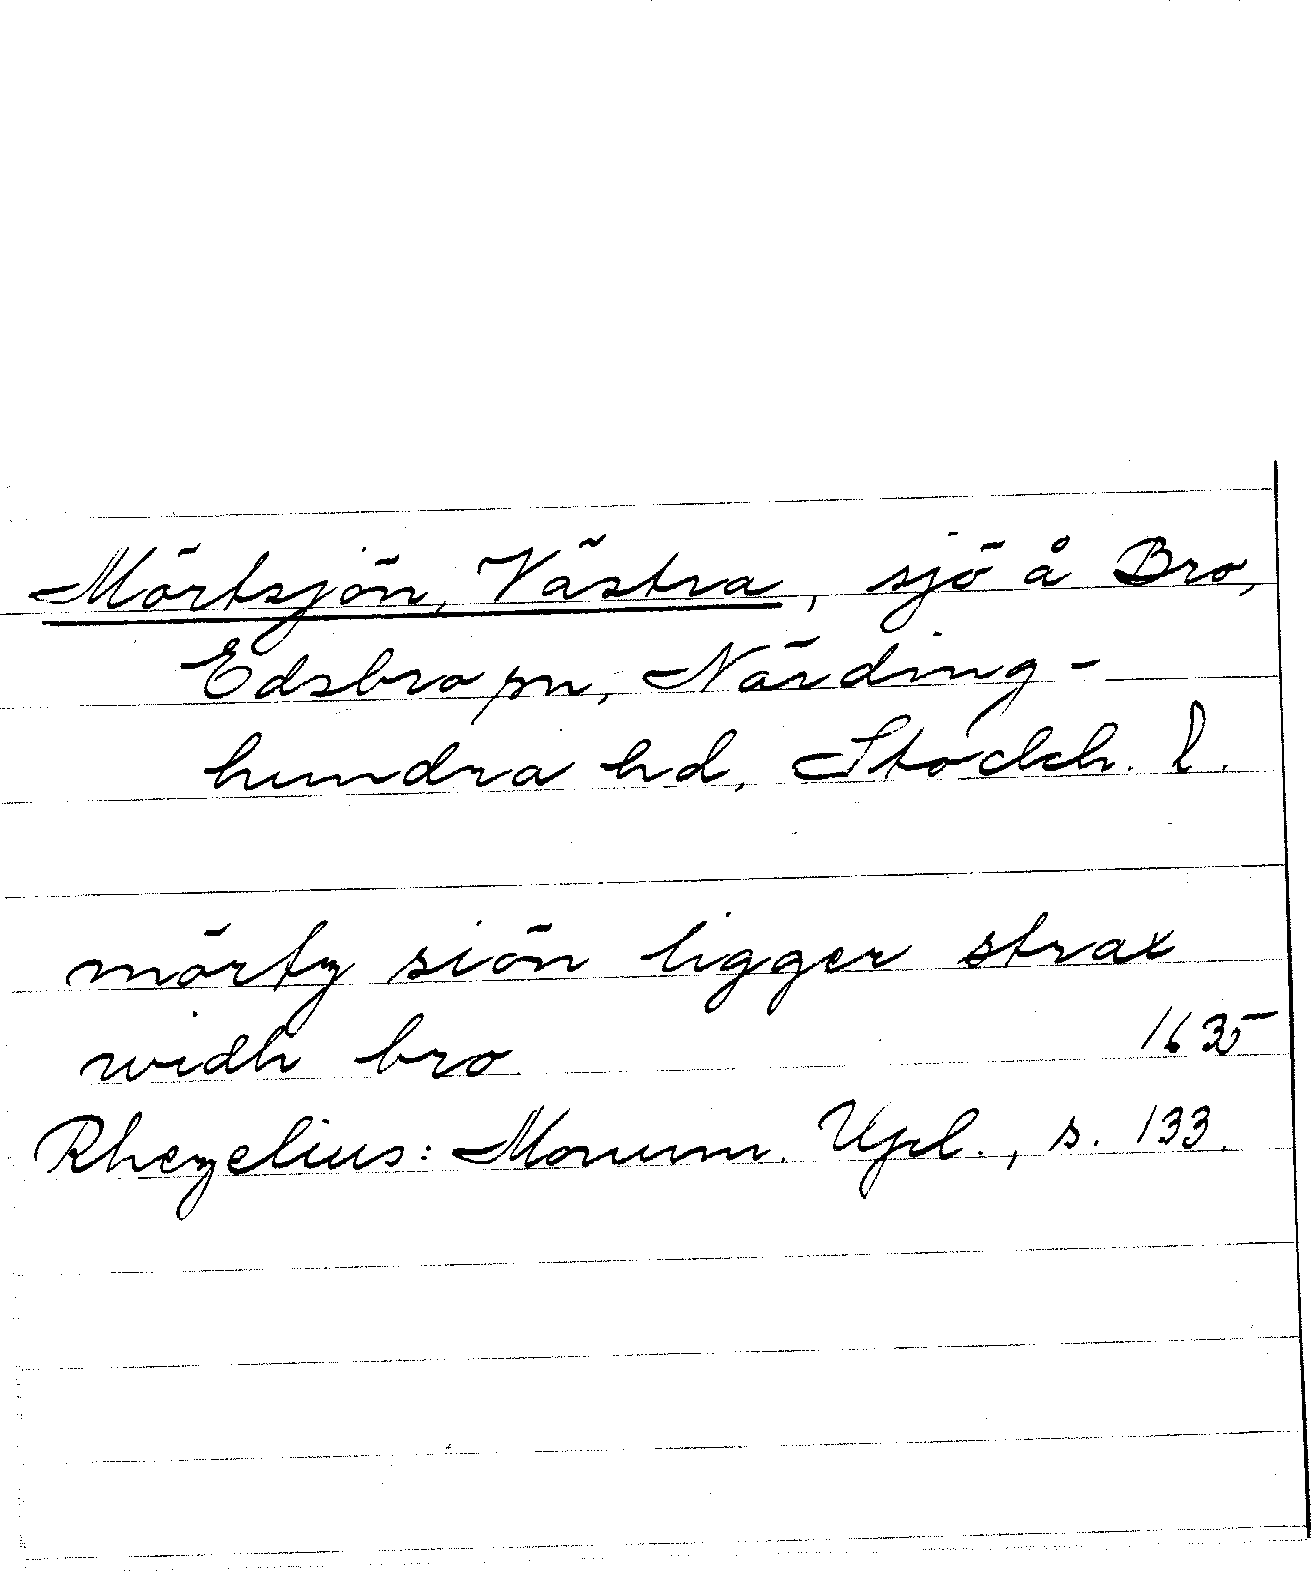 Mörtsjön, Västra, sjö å Bro,
Edsbro sn, Närding-
hundra hd, Stockh. l.
mörtz siön ligger strax
widh bro 1635
Rhezelius: Monum. Upl., s. 133.